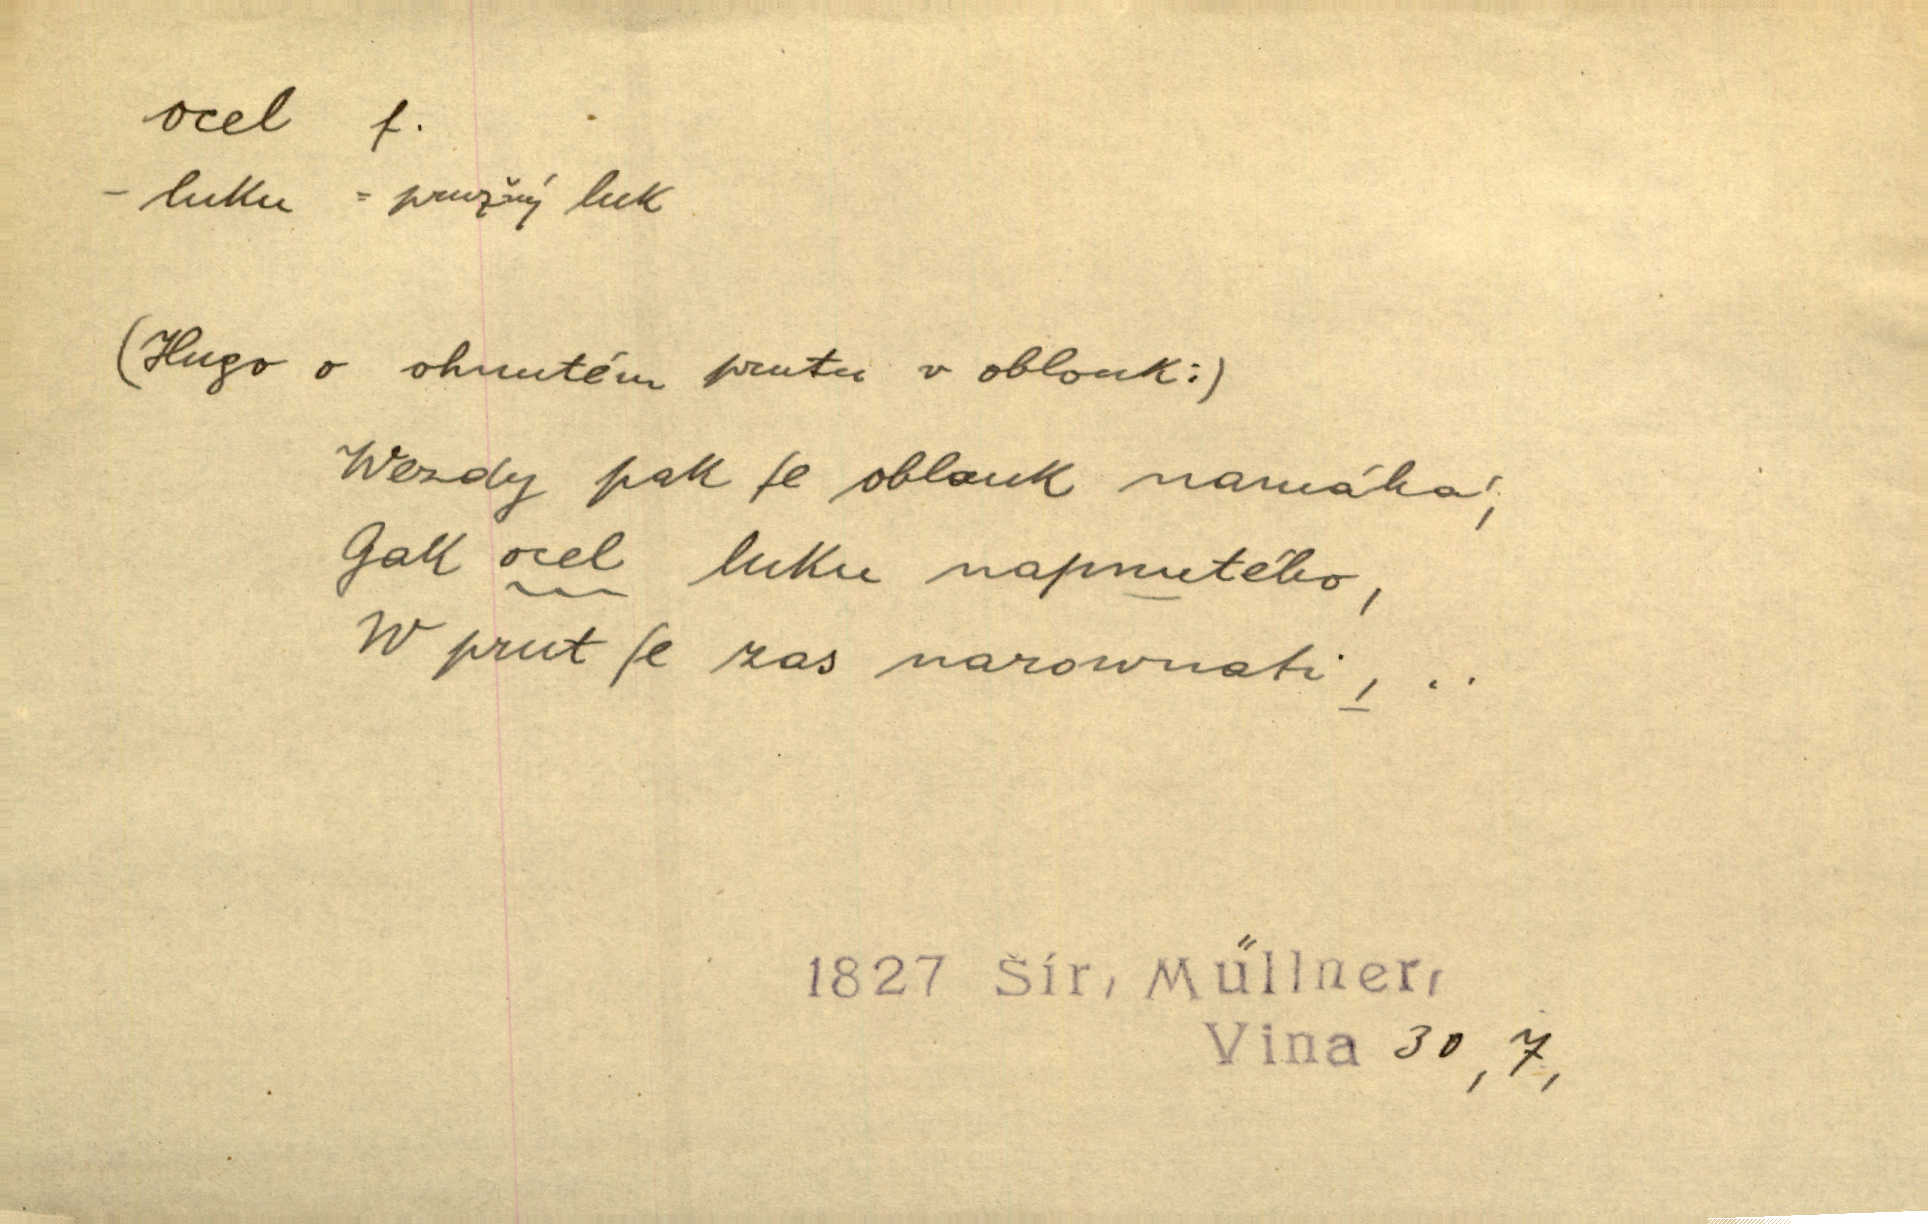 ocel f.
– luku = pružný luk
(Hugo o ohnutém prutu v oblouk:)
Wezdy pak ſe oblauk namáhá;
Gak ocel luku napnutého,
W prut ſe zas narownati, ..
1827 Šír, Müllner,
Vina 30, 7,